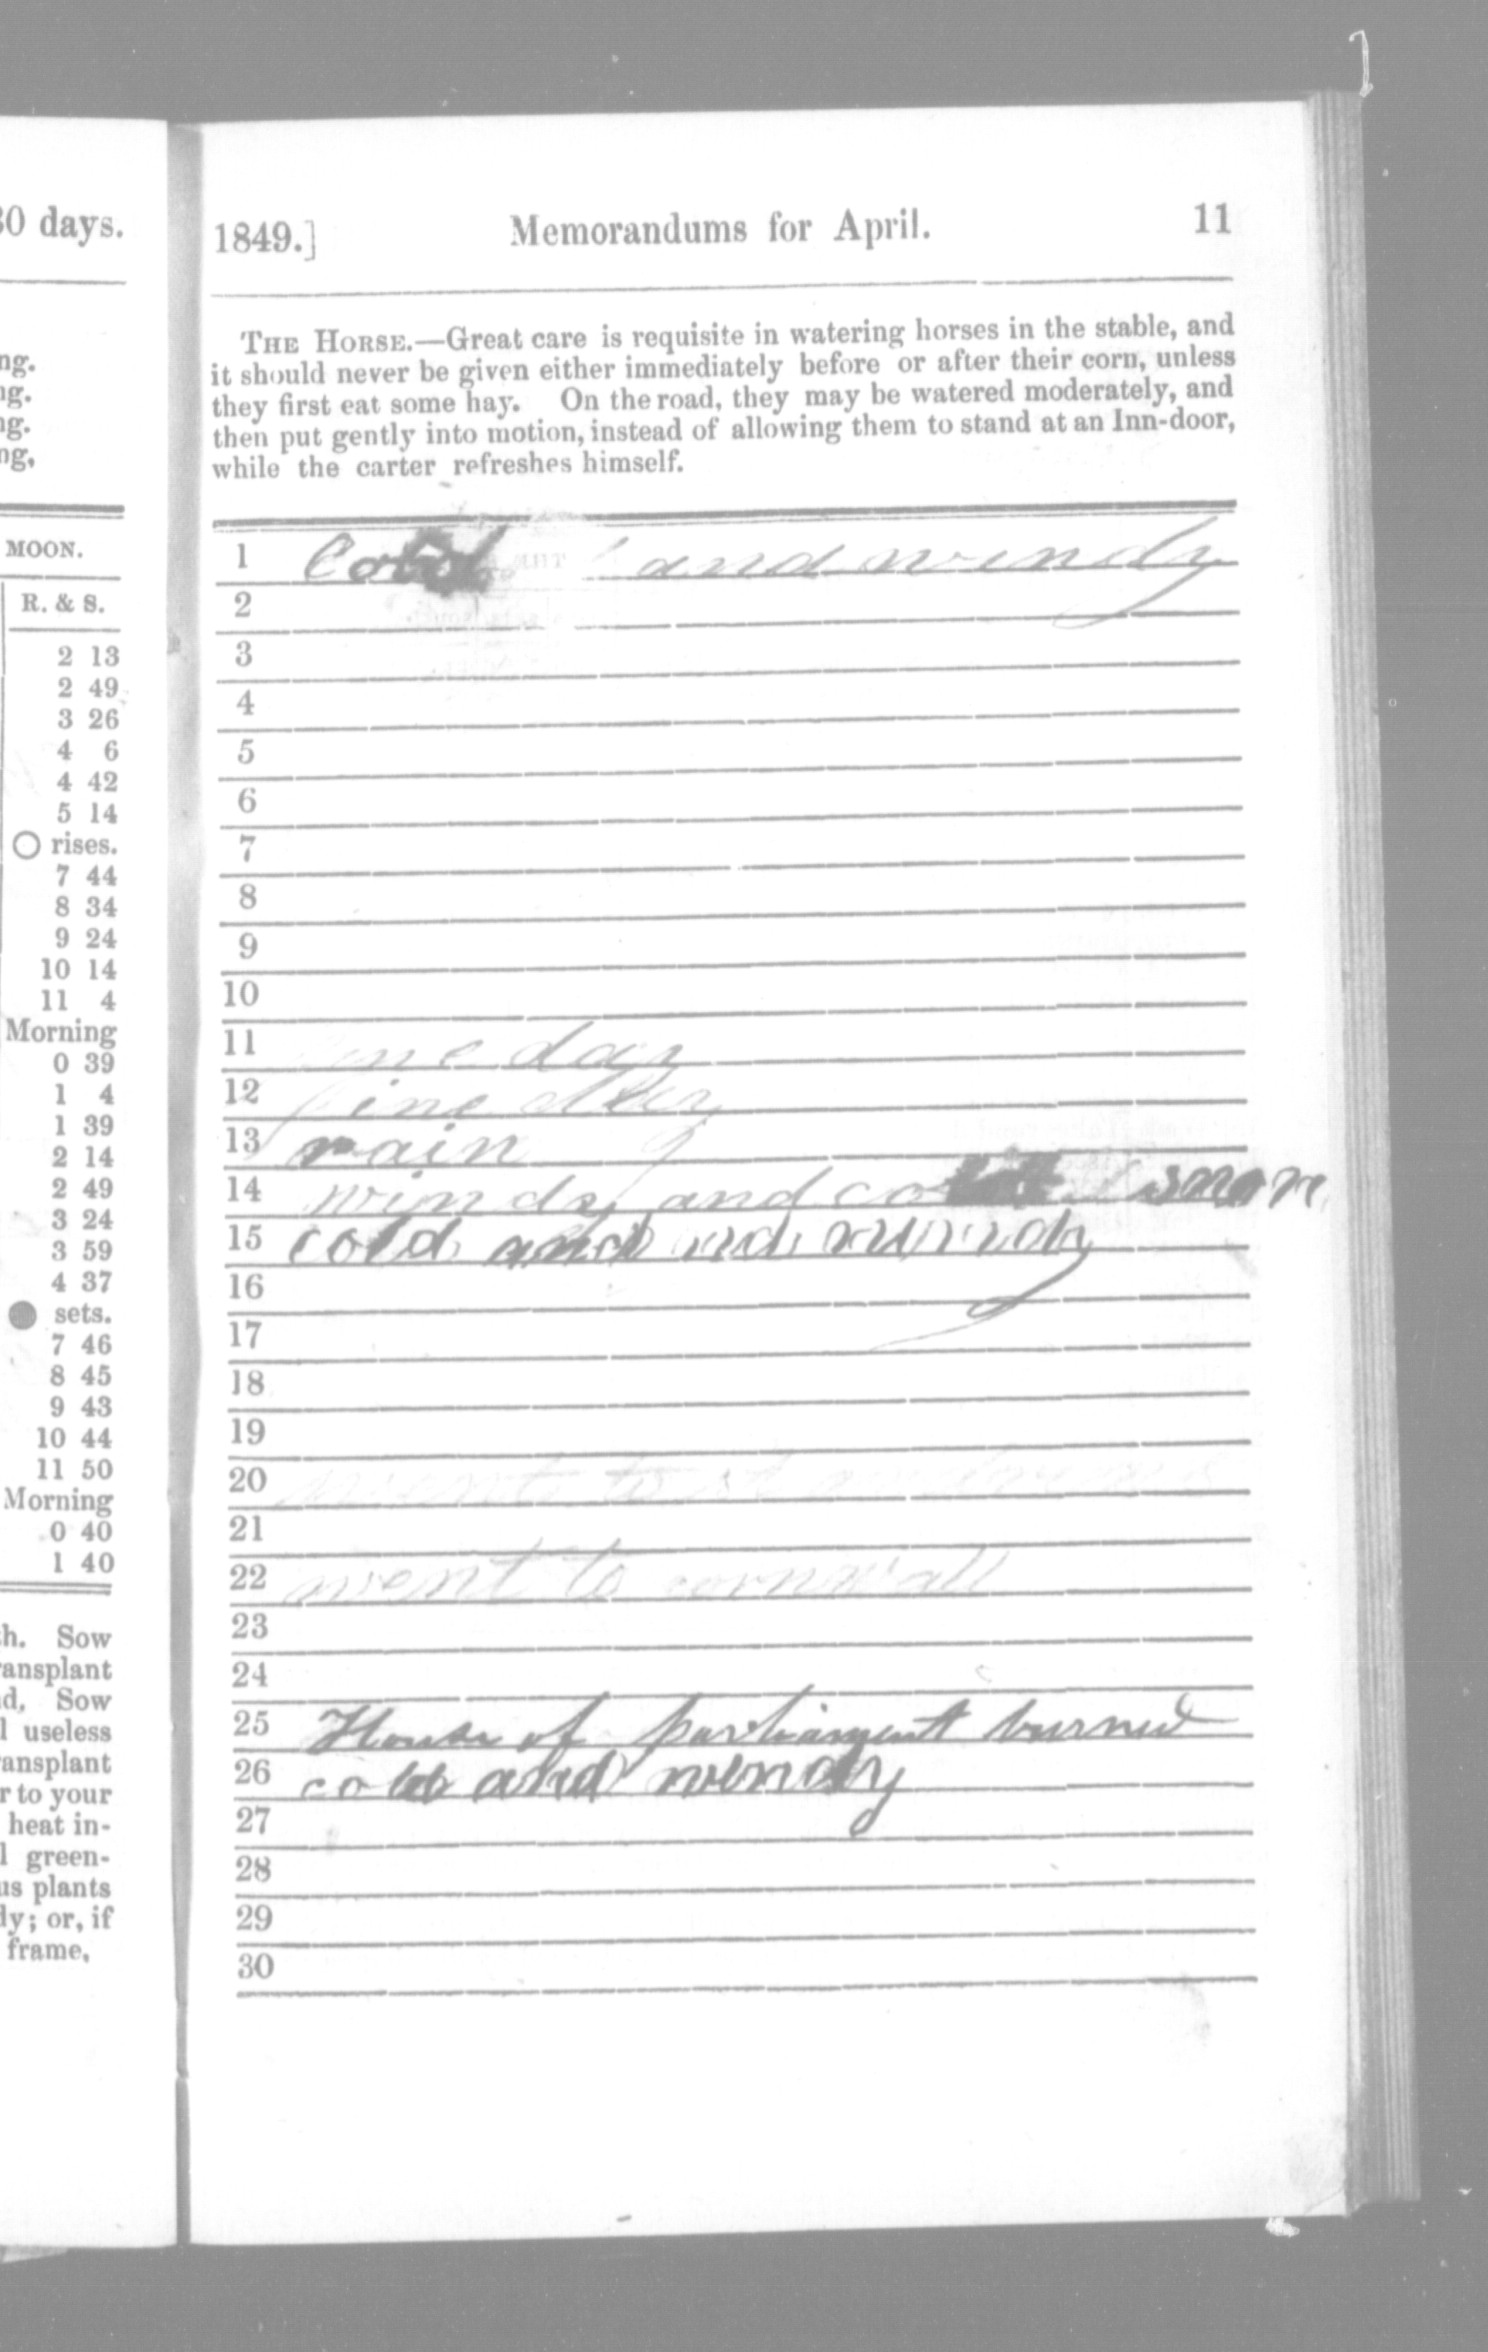 30 days.
ng.
ng.
ng.
ng.
MOON.
R. & S.
2 13
2 49
3 26
4 6
4 42
5 14
rises.
7 44
8 34
9 24
10 14
11 4
Morning
0 39
1 4
1 39
2 14
2 49
3 24
3 59
4 37
sets.
7 46
8 45
9 43
10 44
11 50
Morning
0 40
1 40
th. Sow
ransplant
d, Sow
l useless
ransplant
r to your
heat in-
l green-
us plants
dy; or, if
frame,
1849.] Memorandums for April. 11
THE HORSE.—Great care is requisite in watering horses in the stable, and
it should never be given either immediately before or after their corn, unless
they first eat some hay. On the road, they may be watered moderately, and
then put gently into motion, instead of allowing them to stand at an Inn-door,
while the carter refreshes himself.
1 Cold and windy
2
3
4
5
6
7
8
9
10
11 fine day
12 fine day
13 rain
14 windy and cold snow
15 cold and windy
16
17
18
19
20 went to
21
22 went to cornwall
23
24
25 House of parliament burned
26 cold and windy
27
28
29
30